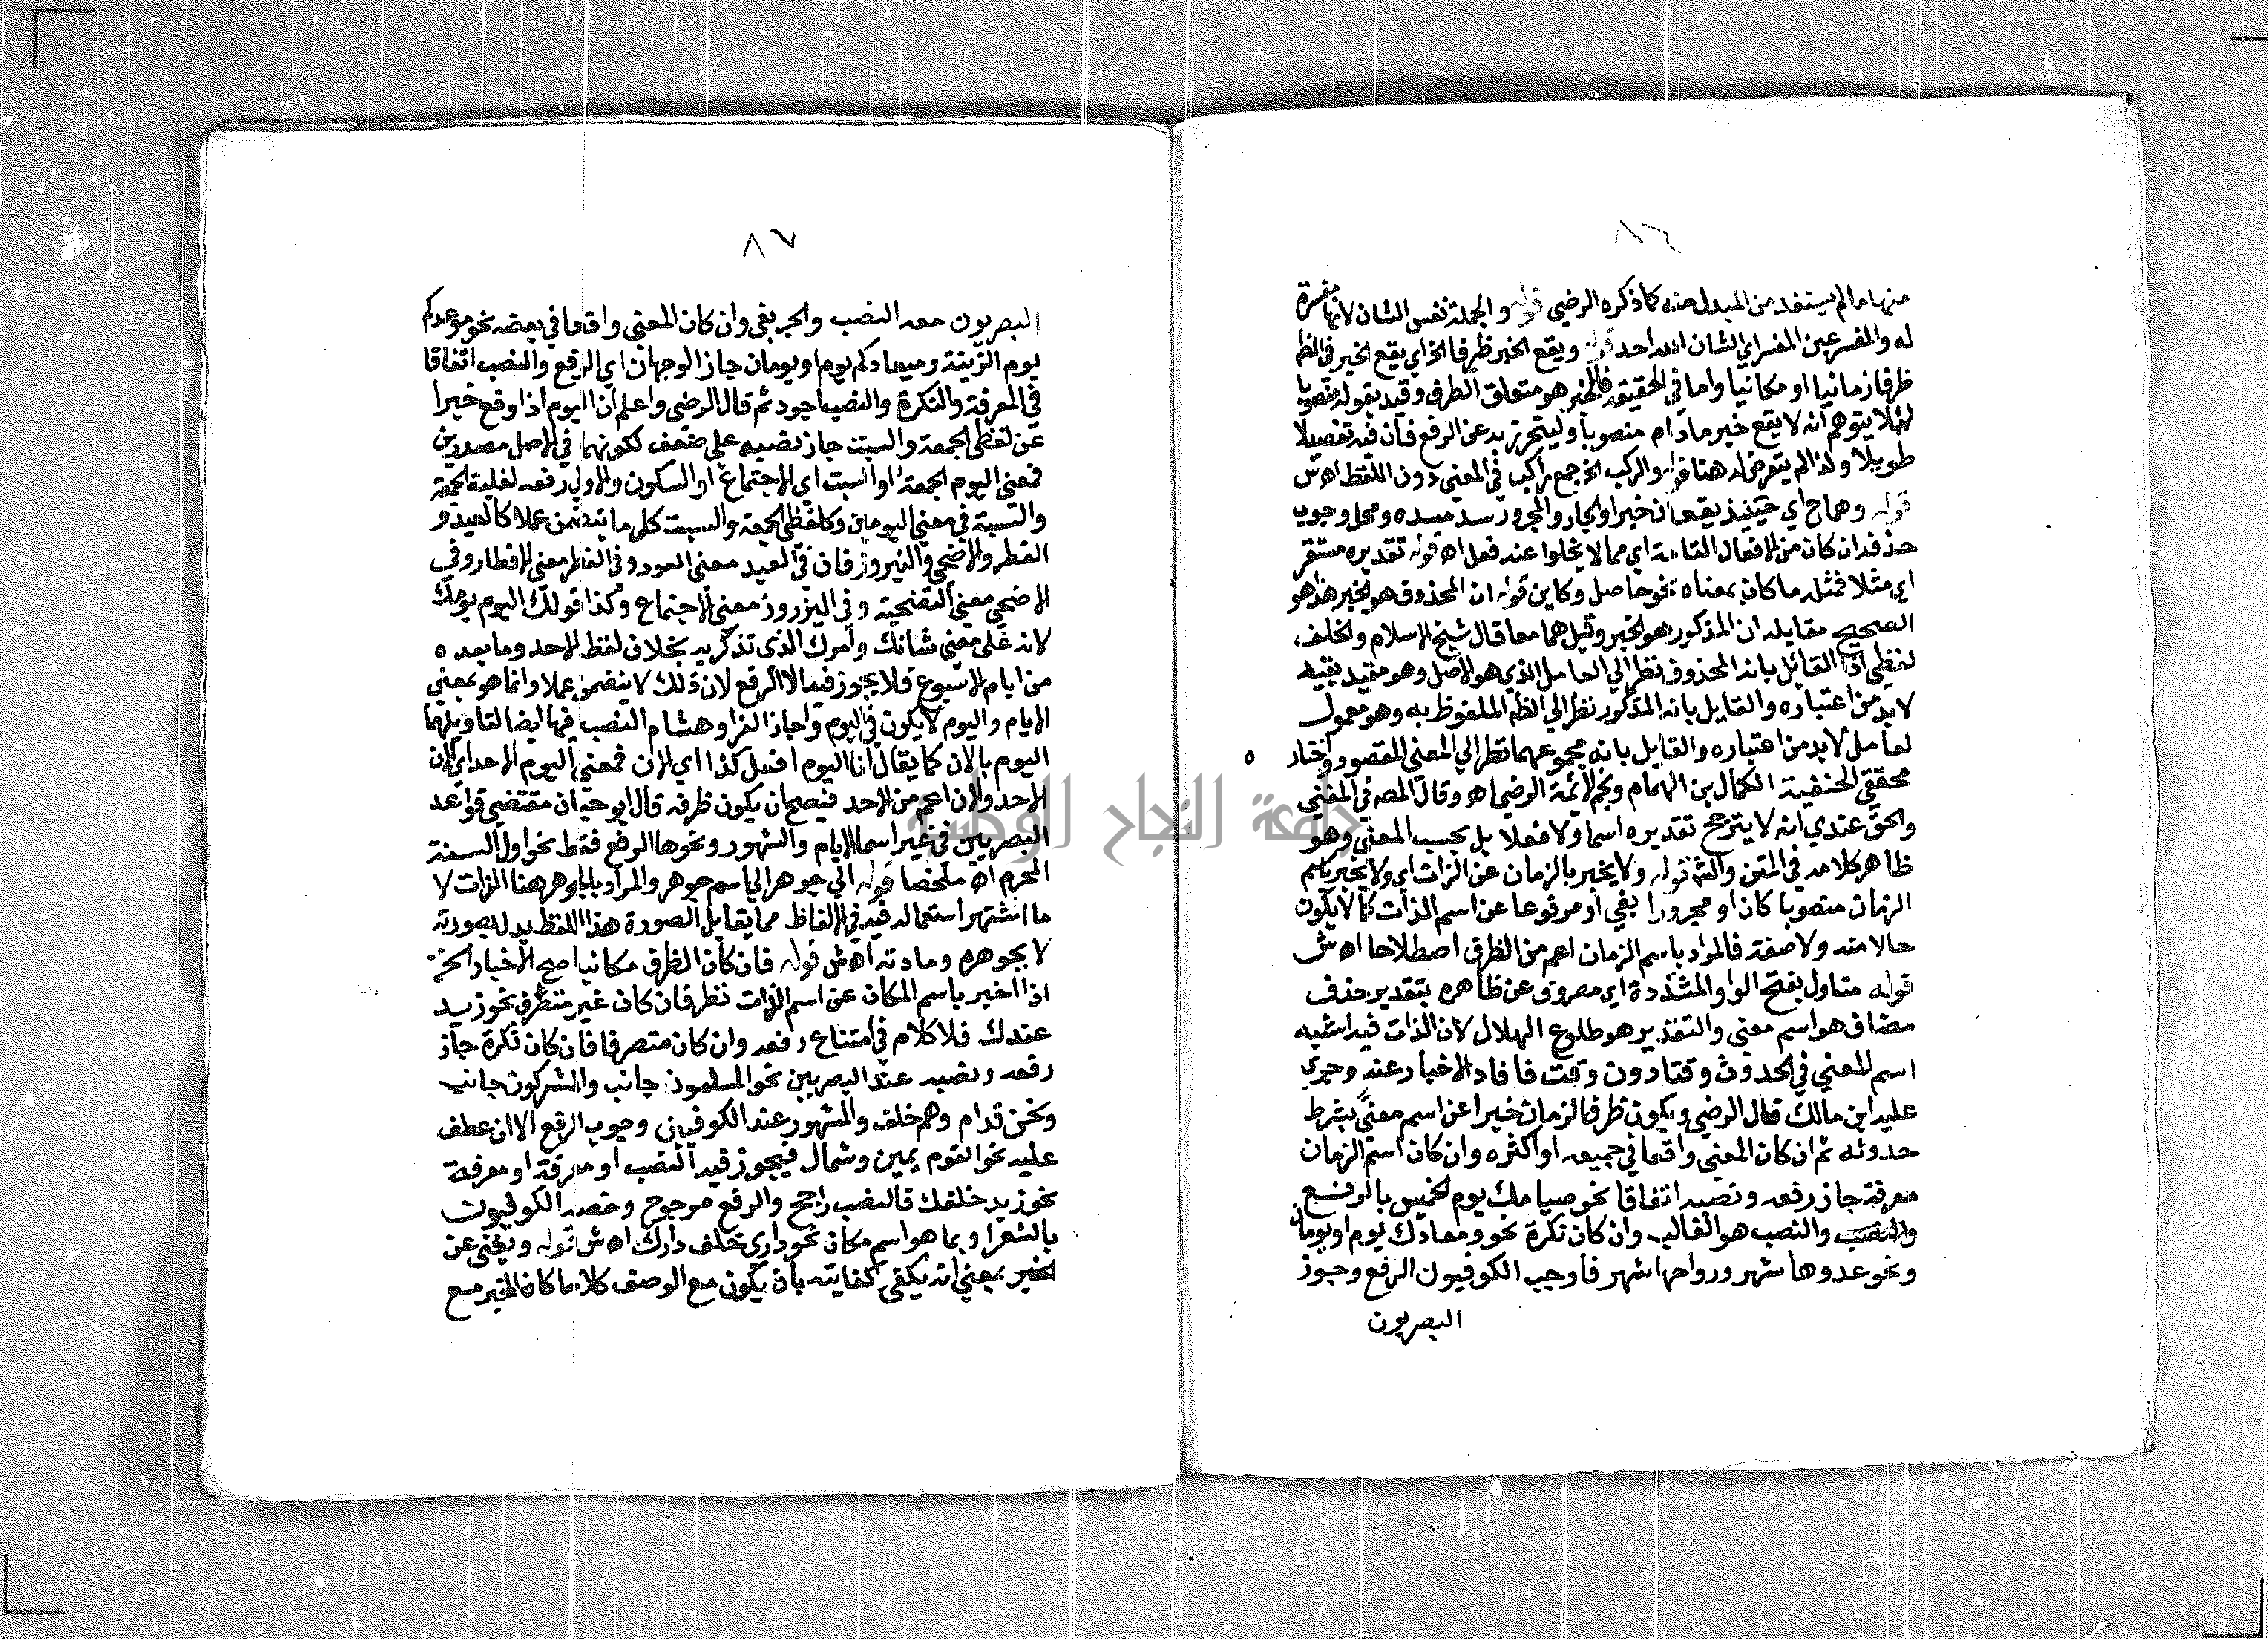 ٨٦
منها ما لم يستفد من المبدل منه كما ذكره الرضي قوله والجملة نفس الشان لانها مفسرة
له والمفسر عين المفسر اي الشان الله احد قوله ويقع الخبر ظرفا الخ اي يقع الخبر في الظ
ظرفا زمانيا او مكانيا واما في الحقيقة فالخبر هو متعلق الظرف وقيد بقوله منصوبا
لئلا يتوهم انه لا يقع خبر مادام منصوبا وليتحرز به عن الرفع فان فيه تفصيلا
طويلا ولذا لم يتعرض له هنا قوله والركب الخ جمع راكب في المعنى دون اللفظ اه ش
قوله وهماح اي حينئذ يقعان خبرا والجار والمجرور سد مسده ومحل وجوب
حذفه ان كان من الافعال العامة اي مما لا يخلوا عنه فعل اه قوله تقديره مستقر
اي مثلا فمثله ما كان بمعناه نحو حاصل وكاين قوله ان المحذوف هو الخبر هذا هو
الصحيح مقابله ان المذكور هو الخبر وقيل هما معا قال شيخ الاسلام والخلف
لفظي اذ القائل بانه المحذوف نظر الي العامل الذي هو الاصل وهو مقيد بقيد
لابد من اعتباره والقايل بانه المذكور نظر الي الظ الملفوظ به وهو معمول
لعامل لابد من اعتباره والقايل بانه مجموعهما نظر الي المعنى المقصود واختار ه
محققي الحنفية الكمال بن الهمام ونجم الائمة الرضي اه وقال المص في المغني
والحق عندي انه لا يترجح تقديره اسما ولا فعلا بل بحسب المعنى وهو
ظاهر كلامه في المتن والش قوله ولا يخبر بالزمان عن الذات اي ولا يخبر باسم
الزمان منصوبا كان او مجرورا بفي او مرفوعا عن اسم الذات كما لا يكون
حالا منه ولا صفة فالمراد باسم الزمان اعم من الظرف اصطلاحا اه ش
قوله متاول بفتح الواو المشددة اي مصروف عن ظاهره بتقدير حذف
مضاف هو اسم معنى والتقدير هو طلوع الهلال لان الذات فيه اشبه
اسم المعني في الحدوث وقتا دون وقت فافاد الاخبار عنه وجري
عليه ابن مالك قال الرضي ويكون ظرف الزمان خبرا عن اسم معنى بشرط
حدوثه ثم ان كان المعنى واقعا في جميعه او اكثره وان كان اسم الزمان
معرفة جاز رفعه ونصبه اتفاقا نحو صيامك يوم الخميس بالرفع
والنصب والنصب هو الغالب وان كان نكرة نحو ومعادك يوم او يومان
ونحو غدوها شهر ورواحها شهر فاوجب الكوفيون الرفع وجوز
البصريون
٨٧
البصريون معه النصب والجر بفي وان كان المعنى واقعا في بعضه نحو موعدكم
يوم الزينة وميعادكم يوم او يومان جاز الوجهان اي الرفع والنصب اتفاقا
في المعرفة والنكرة والنصب اجود ثم قال الرضي واعلم ان اليوم اذا وقع خبرا
عن لفظي الجمعة والسبت جاز نصبه علي ضعف لكونهما في الاصل مصدرين
فمعنى اليوم الجمعة او السبت اي الاجتماع او السكون والاولي رفعه لغلبة الجمعة
والسبت في معنى اليومين وكلفظي الجمعة والسبت كل ما يتضمن عملا كالعيد و
الفطر والاضحي والنيروز فان في العيد معنى العود وفي الفطر معنى الافطار وفي
الاضحي معنى التضحية وفي النيروز معنى الاجتماع وكذا قولك اليوم يومك
لانه علي معنى شانك وامرك الذي تذكر به بخلاف لفظ الاحد وما بعده
من ايام الاسبوع فلا يجوز فيه الا الرفع لان ذلك لا يتضمن عملا وانما هو بمعني
الايام واليوم لا يكون في اليوم واجاز الفرا وهشام النصب فيها ايضا لتاويلهما
اليوم بالان كما يقال انا اليوم افعل كذا اي الان فمعنى اليوم الاحد اي الان
الاحد والان اعم من الاحد فيصح ان يكون ظرفه قال ابو حيان مقتضي قواعد
البصريين في غير اسما الايام والشهور ونحوها الرفع فقط نحو اول السنة
المحرم اه ملخصا قوله الي جوهر الي اسم جوهر والمراد بالجوهر هنا الذات لا
ما اشتهر استعماله فيه في الالفاظ مما يقابل الصورة هذا اللفظ يدل بصورته
لا بجوهره ومادته اه ش قوله فان كان الظرف مكانيا صح الاخبار الخ
اذا اخبر باسم المكان عن اسم الذات نظر فان كان غير متصرف نحو زيد
عندك فلا كلام في امتناع رفعه وان كان متصرفا فان كان نكرة جاز
رفعه ونصبه عند البصريين نحو المسلمون جانب والمشركون جانب
ونحن قدام وهم خلف والمشهور عند الكوفيين وجوب الرفع الا ان عطف
عليه نحو القوم يمين وشمال فيجوز فيه النصب او معرفة او معرفة
نحو زيد خلفك فالنصب راجح والرفع مرجوح وخصه الكوفيون
بالشعر او بما هو اسم مكان نحو داري خلف دارك اه ش قوله ويغني عن
الخبر بمعني انه يكفي كفايته بان يكون مع الوصف كلاما كان الخبر مع
جامعة النجاح الوطنية